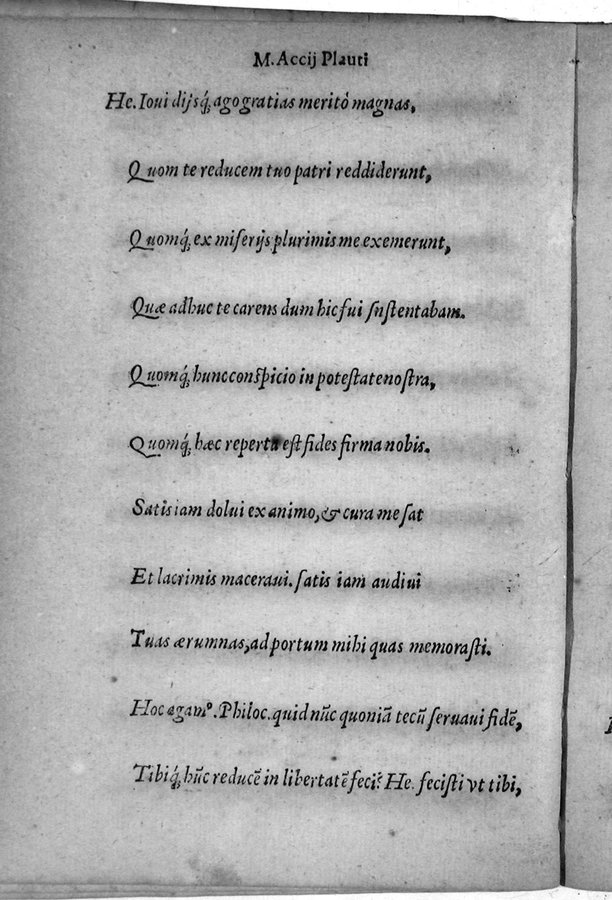 M. Accij Plauti
He. Ioui dijsq́; ago gratias meritò magnas,
Quom te reducem tuo patri reddiderunt,
Quomq́; ex miserijs plurimis me exemerunt,
Quæ adhuc te carens dum hic fui sustentabam.
Quomq́; hunc conspicio in potestate nostra,
Quomq́; hæc reperta est fides firma nobis.
Satis iam dolui ex animo, & cura me sat
Et lacrimis maceraui. satis iam audiui
Tuas ærumnas, ad portum mihi quas memorasti.
Hoc agamº. Philoc. quid nũc quoniã tecũ seruaui fidẽ,
Tibiq́; hũc reducẽ in libertatẽ feci? He. fecisti vt tibi,